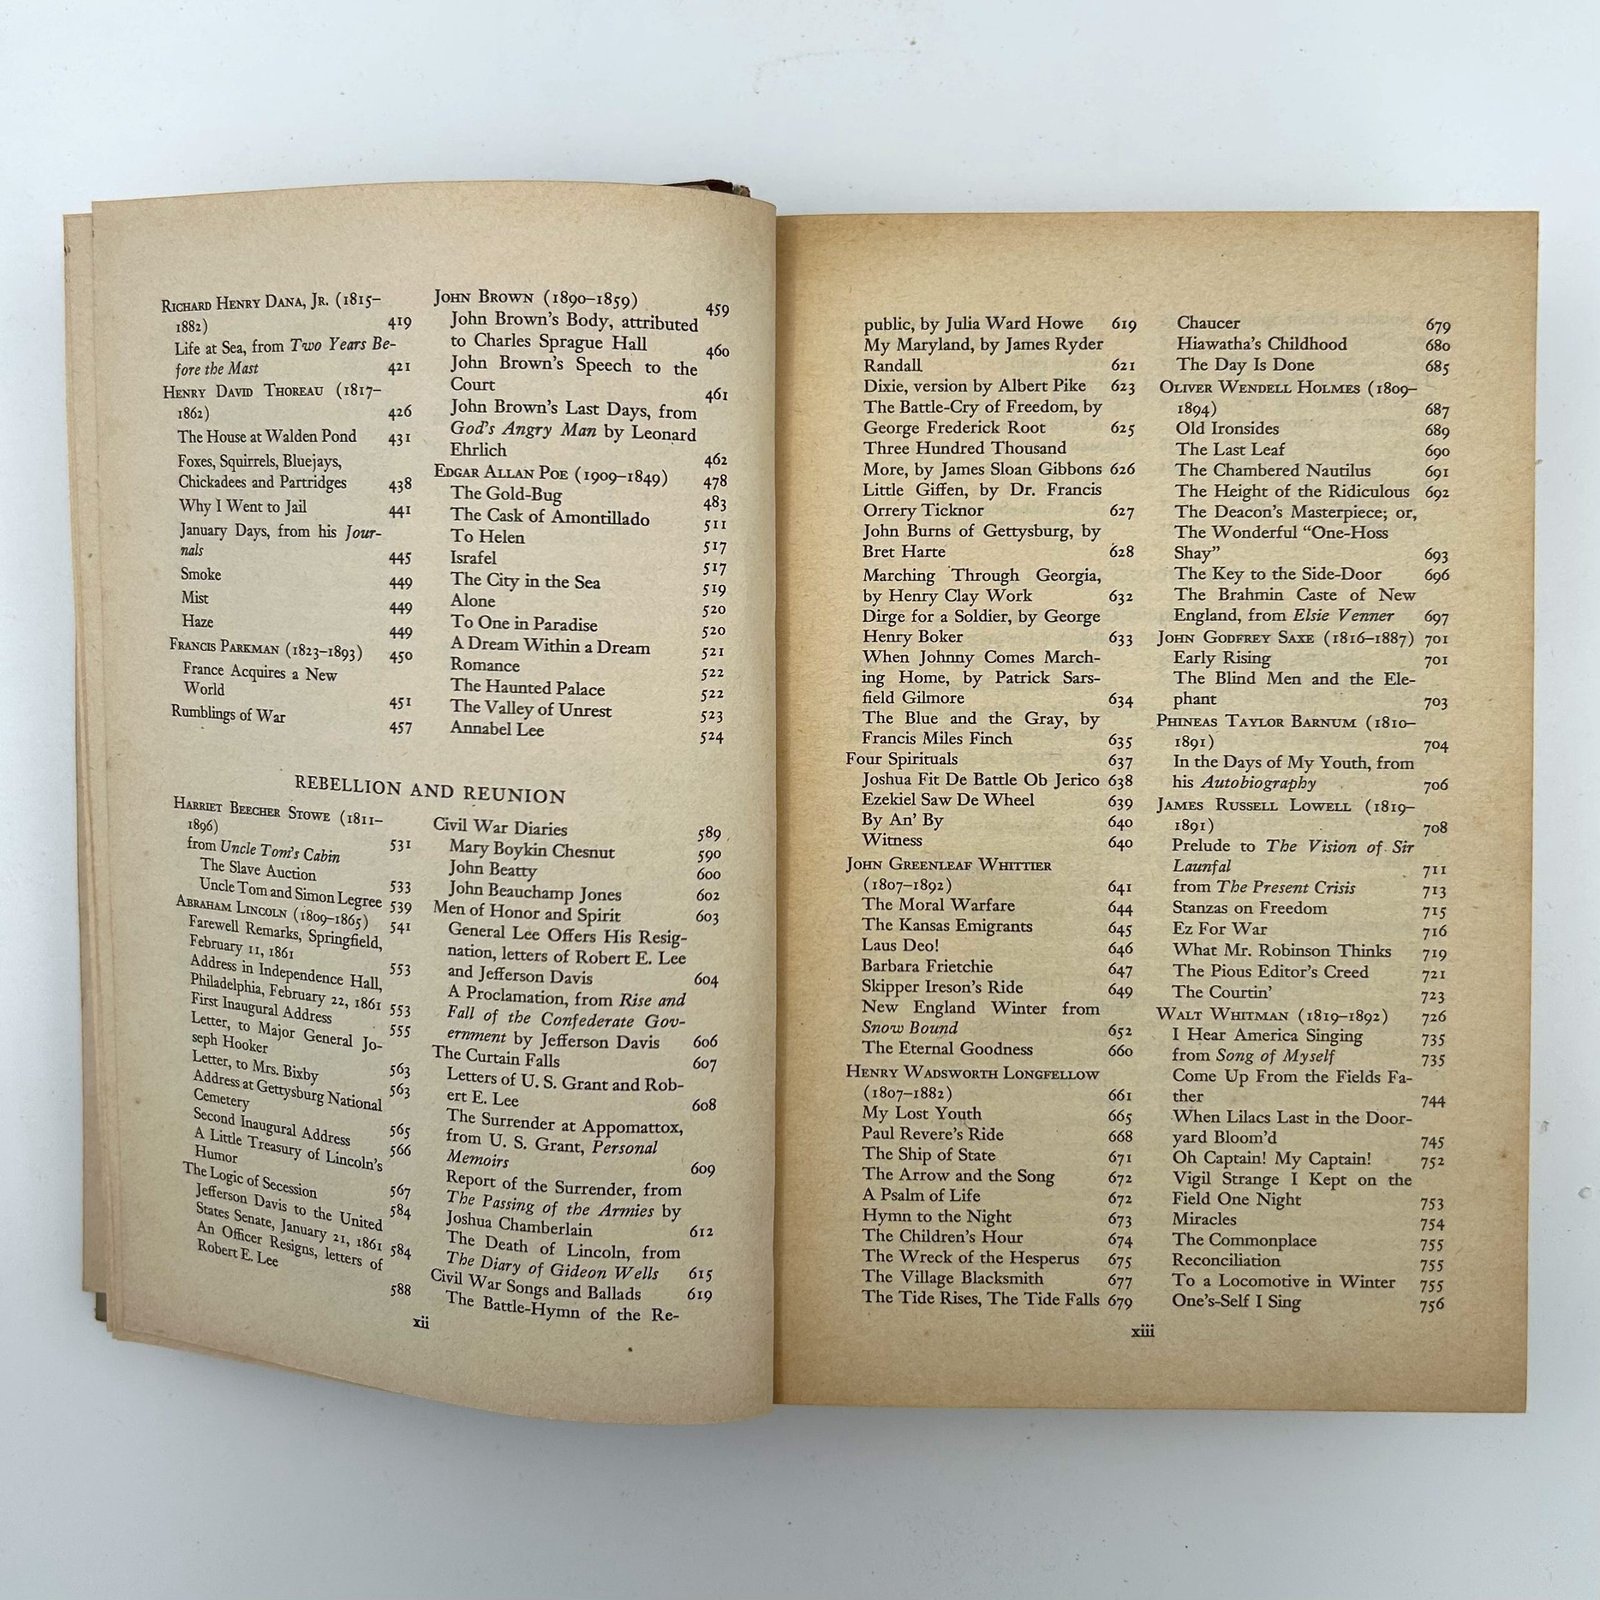 RICHARD HENRY DANA, JR. (1815–
1882) 419
Life at Sea, from Two Years Be-
fore the Mast 421
HENRY DAVID THOREAU (1817–
1862) 426
The House at Walden Pond 431
Foxes, Squirrels, Bluejays,
Chickadees and Partridges 438
Why I Went to Jail 441
January Days, from his Jour-
nals 445
Smoke 449
Mist 449
Haze 449
FRANCIS PARKMAN (1823–1893) 450
France Acquires a New
World 451
Rumblings of War 457
JOHN BROWN (1890–1859) 459
John Brown's Body, attributed
to Charles Sprague Hall 460
John Brown's Speech to the
Court 461
John Brown's Last Days, from
God's Angry Man by Leonard
Ehrlich 462
EDGAR ALLAN POE (1909–1849) 478
The Gold-Bug 483
The Cask of Amontillado 511
To Helen 517
Israfel 517
The City in the Sea 519
Alone 520
To One in Paradise 520
A Dream Within a Dream 521
Romance 522
The Haunted Palace 522
The Valley of Unrest 523
Annabel Lee 524
REBELLION AND REUNION
HARRIET BEECHER STOWE (1811–
1896) 531
from Uncle Tom's Cabin
The Slave Auction 533
Uncle Tom and Simon Legree 539
ABRAHAM LINCOLN (1809–1865) 541
Farewell Remarks, Springfield,
February 11, 1861 553
Address in Independence Hall,
Philadelphia, February 22, 1861 553
First Inaugural Address 555
Letter, to Major General Jo-
seph Hooker 563
Letter, to Mrs. Bixby 563
Address at Gettysburg National
Cemetery 565
Second Inaugural Address 566
A Little Treasury of Lincoln's
Humor 567
The Logic of Secession 584
Jefferson Davis to the United
States Senate, January 21, 1861 584
An Officer Resigns, letters of
Robert E. Lee 588
Civil War Diaries 589
Mary Boykin Chesnut 590
John Beatty 600
John Beauchamp Jones 602
Men of Honor and Spirit 603
General Lee Offers His Resig-
nation, letters of Robert E. Lee
and Jefferson Davis 604
A Proclamation, from Rise and
Fall of the Confederate Gov-
ernment by Jefferson Davis 606
The Curtain Falls 607
Letters of U. S. Grant and Rob-
ert E. Lee 608
The Surrender at Appomattox,
from U. S. Grant, Personal
Memoirs 609
Report of the Surrender, from
The Passing of the Armies by
Joshua Chamberlain 612
The Death of Lincoln, from
The Diary of Gideon Wells 615
Civil War Songs and Ballads 619
The Battle-Hymn of the Re-
xii
public, by Julia Ward Howe 619
My Maryland, by James Ryder
Randall 621
Dixie, version by Albert Pike 623
The Battle-Cry of Freedom, by
George Frederick Root 625
Three Hundred Thousand
More, by James Sloan Gibbons 626
Little Giffen, by Dr. Francis
Orrery Ticknor 627
John Burns of Gettysburg, by
Bret Harte 628
Marching Through Georgia,
by Henry Clay Work 632
Dirge for a Soldier, by George
Henry Boker 633
When Johnny Comes March-
ing Home, by Patrick Sars-
field Gilmore 634
The Blue and the Gray, by
Francis Miles Finch 635
Four Spirituals 637
Joshua Fit De Battle Ob Jerico 638
Ezekiel Saw De Wheel 639
By An' By 640
Witness 640
JOHN GREENLEAF WHITTIER
(1807–1892) 641
The Moral Warfare 644
The Kansas Emigrants 645
Laus Deo! 646
Barbara Frietchie 647
Skipper Ireson's Ride 649
New England Winter from
Snow Bound 652
The Eternal Goodness 660
HENRY WADSWORTH LONGFELLOW
(1807–1882) 661
My Lost Youth 665
Paul Revere's Ride 668
The Ship of State 671
The Arrow and the Song 672
A Psalm of Life 672
Hymn to the Night 673
The Children's Hour 674
The Wreck of the Hesperus 675
The Village Blacksmith 677
The Tide Rises, The Tide Falls 679
Chaucer 679
Hiawatha's Childhood 680
The Day Is Done 685
OLIVER WENDELL HOLMES (1809–
1894) 687
Old Ironsides 689
The Last Leaf 690
The Chambered Nautilus 691
The Height of the Ridiculous 692
The Deacon's Masterpiece; or,
The Wonderful “One-Hoss
Shay” 693
The Key to the Side-Door 696
The Brahmin Caste of New
England, from Elsie Venner 697
JOHN GODFREY SAXE (1816–1887) 701
Early Rising 701
The Blind Men and the Ele-
phant 703
PHINEAS TAYLOR BARNUM (1810–
1891) 704
In the Days of My Youth, from
his Autobiography 706
JAMES RUSSELL LOWELL (1819–
1891) 708
Prelude to The Vision of Sir
Launfal 711
from The Present Crisis 713
Stanzas on Freedom 715
Ez For War 716
What Mr. Robinson Thinks 719
The Pious Editor's Creed 721
The Courtin' 723
WALT WHITMAN (1819–1892) 726
I Hear America Singing 735
from Song of Myself 735
Come Up From the Fields Fa-
ther 744
When Lilacs Last in the Door-
yard Bloom'd 745
Oh Captain! My Captain! 752
Vigil Strange I Kept on the
Field One Night 753
Miracles 754
The Commonplace 755
Reconciliation 755
To a Locomotive in Winter 755
One's-Self I Sing 756
xiii